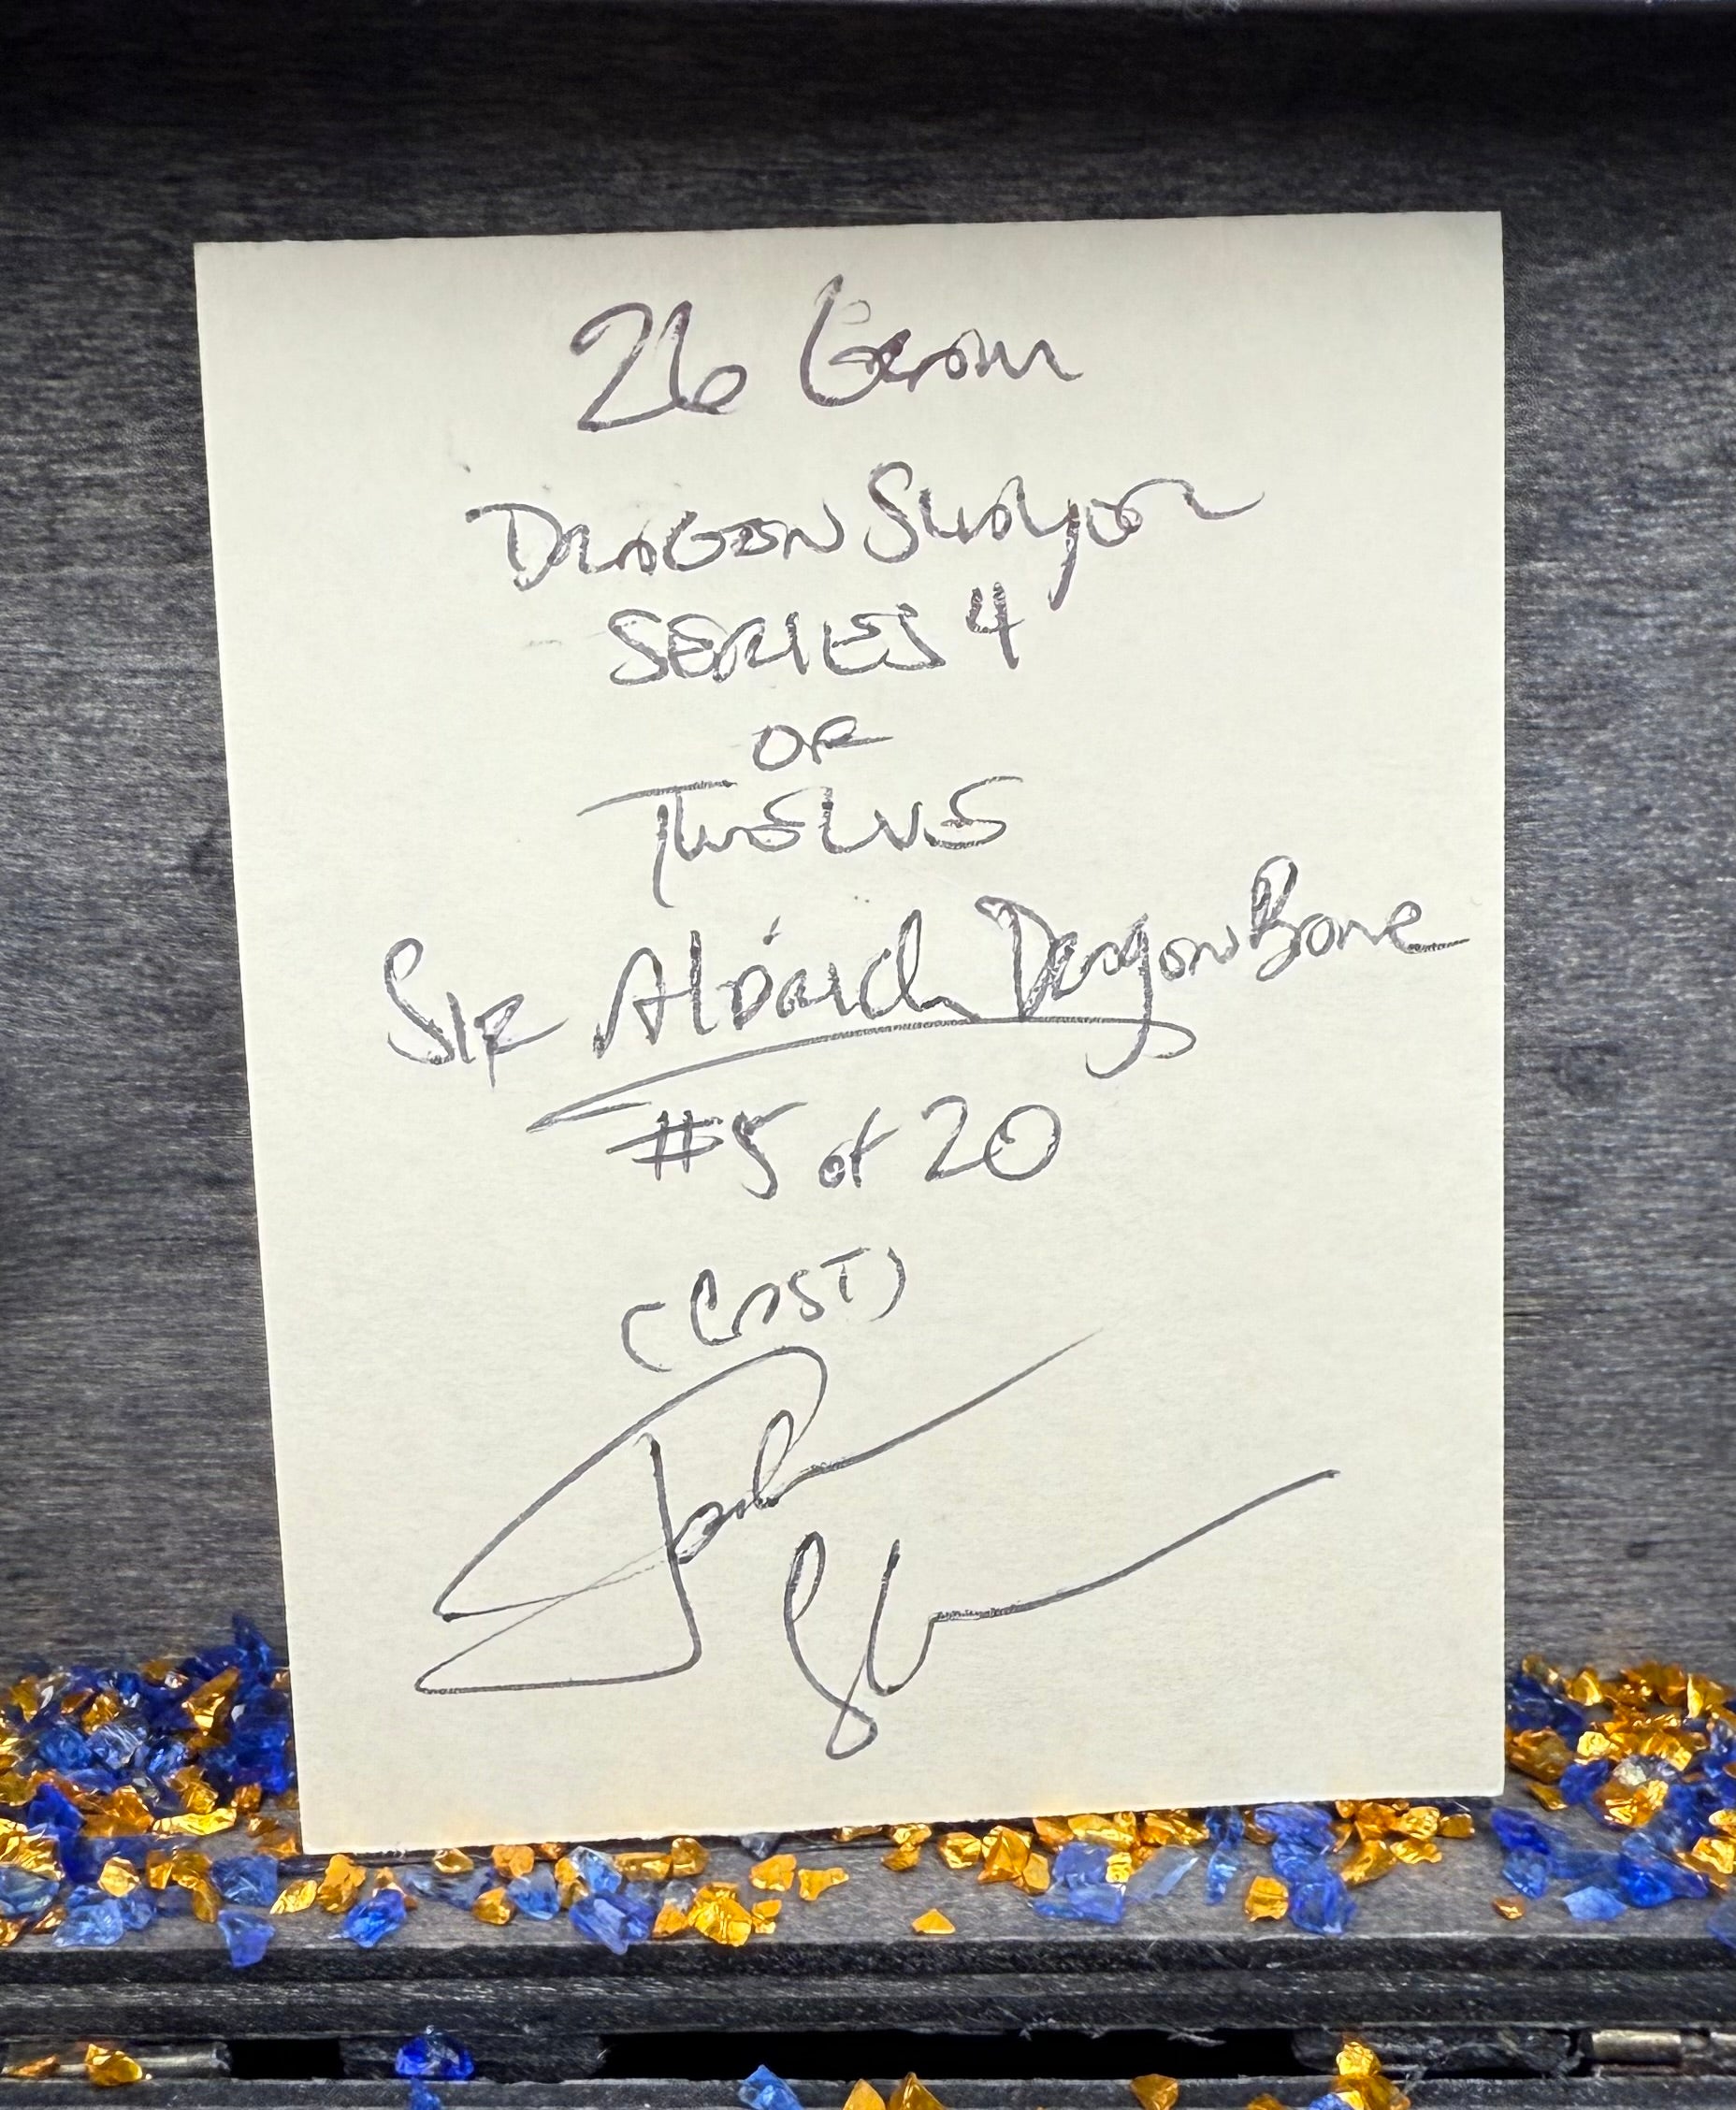 26 Gram
DRAGON Slayer
SERIES 4
OF
TWELVE
SIR Aldrich DragonBone
#5 of 20
(CAST)